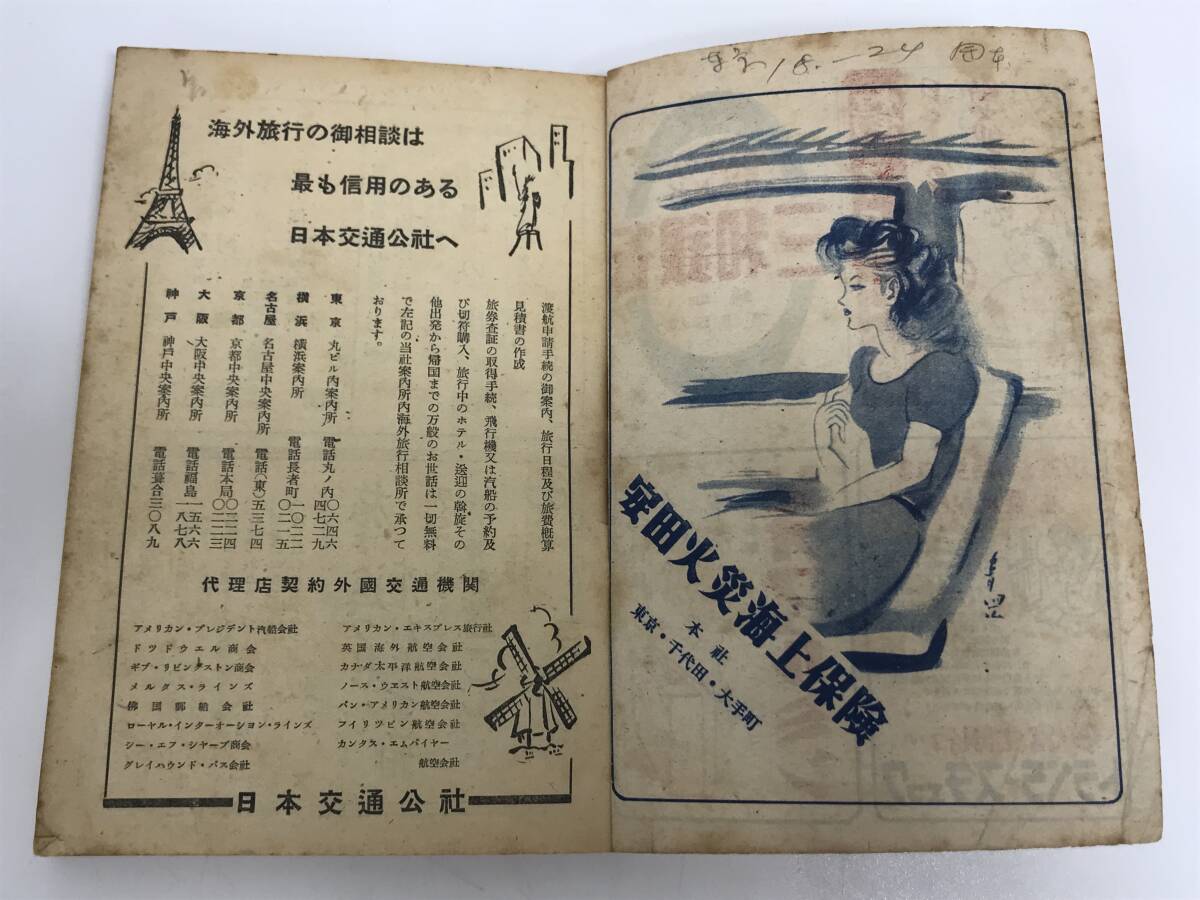 海外旅行の御相談は
最も信用のある
日本交通公社へ
渡航申請手続の御案内、旅行日程及び旅費概算
見積書の作成
旅券査証の取得手続、飛行機又は汽船の予約及
び切符購入、旅行中のホテル・送迎の斡旋その
他出発から帰国までの万般のお世話は一切無料
で左記の当社案内所内海外旅行相談所で承つて
おります。
東京 丸ビル内案内所 電話丸ノ内 〇六四六 四七二九
横浜 横浜案内所 電話長者町 一〇二二 〇二一五
名古屋 名古屋中央案内所 電話(東)五三七四
京都 京都中央案内所 電話本局 〇二二四 〇二二三
大阪 大阪中央案内所 電話福島 一五六六 一八七八
神戸 神戸中央案内所 電話葺合三〇八九
代理店契約外國交通機関
アメリカン・プレジデント汽船会社
ドツドウエル商会
ギブ・リビングストン商会
メルダス・ラインズ
佛国郵船会社
ローヤル・インターオーシヨン・ラインズ
シー・エフ・シヤープ商会
グレイハウンド・バス会社
アメリカン・エキスプレス旅行社
英国海外航空会社
カナダ太平洋航空会社
ノース・ウエスト航空会社
パン・アメリカン航空会社
フイリツピン航空会社
カンタス・エムパイヤー
航空会社
日本交通公社
18.—24
安田火災海上保険
本社
東京・千代田・大手町